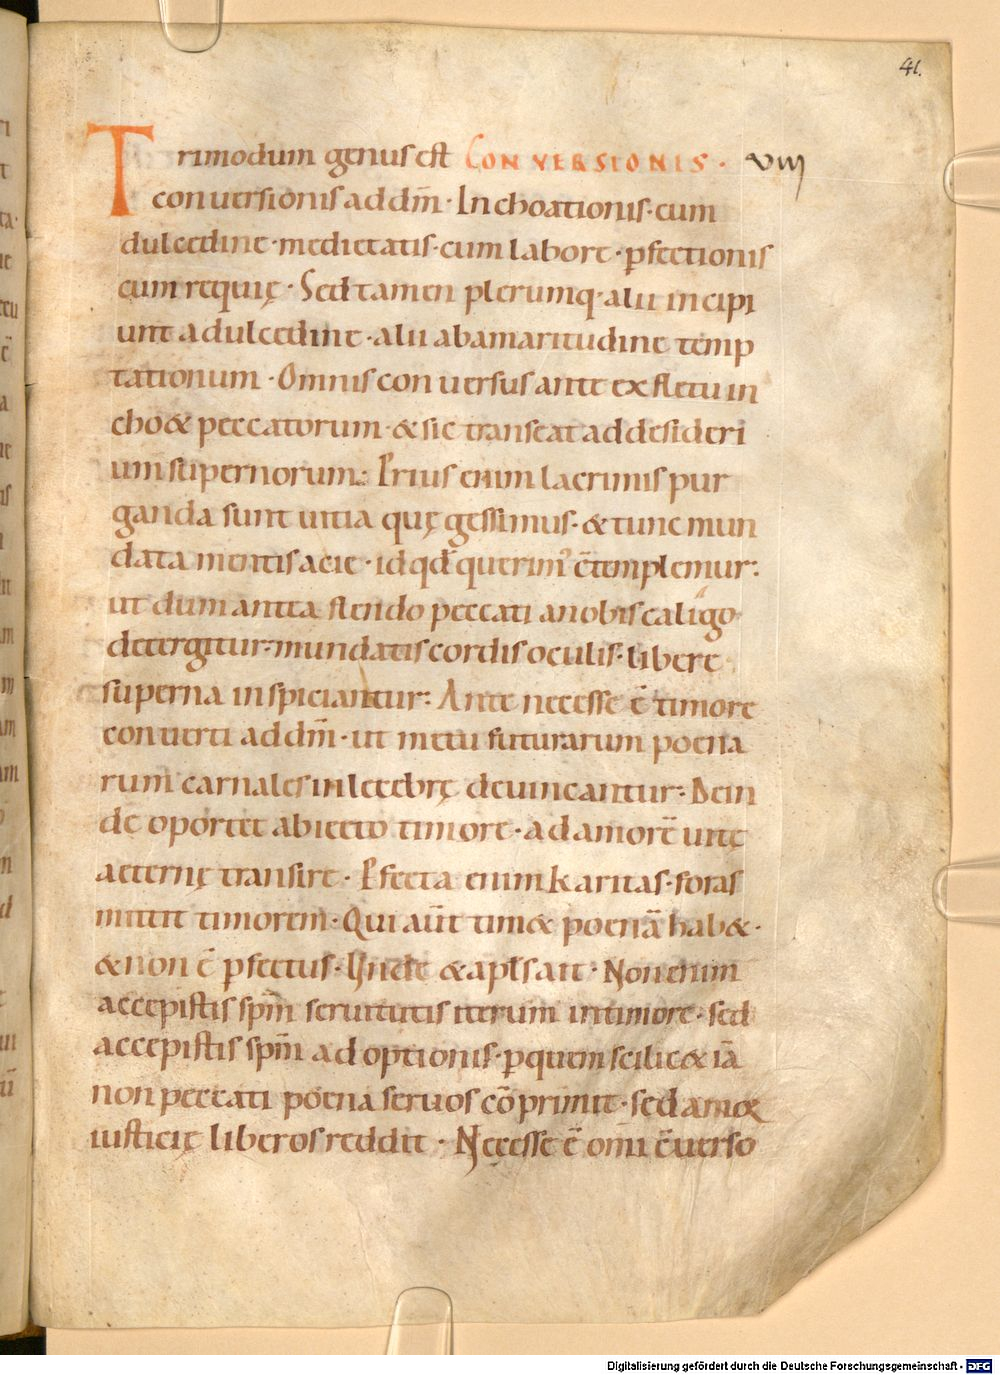 41.
Trimodum genus est CONVERSIONIS · VIII
conversionis ad dm̅ · Inchoationis · cum
dulcedine · medietatis · cum labore · ꝑfectionis
cum requię · Sed tamen plerumq · alii incipi
unt a dulcedine · alii ab amaritudine temp
tationum · Omnis conversus ante ex fletu in
cho& peccatorum · & sic transeat ad desideri
um supernorum : Prius enim lacrimis pur
ganda sunt uitia quę gessimus · & tunc mun
data mentis acie · id qđ querim᾽ c̅templemur :
ut dum antea flendo peccati a nobis caligo
detergitur : mundatis cordis oculis · libere
superna inspiciantur : Ante necesse e̅ timore
conuerti ad dm̅ · ut metu futurarum poena
rum carnales inlecebrę deuincantur : Dein
de oportet abiecto timore · ad amore̅ uitę
aeternę transire · Ꝑfecta enim karitas · foras
mittit timorem · Qui aut̅ tim& poena̅ hab& ·
& non e̅ ꝑfectus · Unde & apls̅ ait · Non enim
accepistis spm̅ seruitutis iterum in timore · sed
accepistis spm̅ adoptionis · ꝑ quem scilic& ia̅
non peccati poena seruos co̅primit · sed amor
iusticię liberos reddit · Necesse e̅ omi̅ c̅uerso
Digitalisierung gefördert durch die Deutsche Forschungsgemeinschaft - DFG